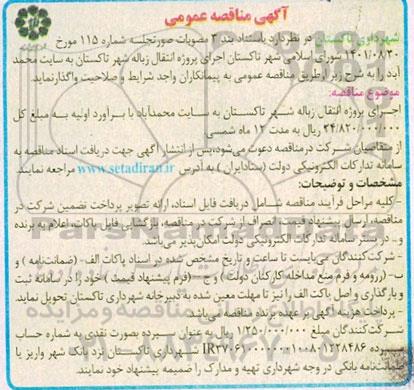 آگهی مناقصه عمومی
شهرداری تاکستان در نظر دارد باستناد بند ۳ مصوبات صورتجلسه شماره ۱۱۵ مورخ
۱۴۰۱/۰۸/۳۰ شورای اسلامی شهر تاکستان اجرای پروژه انتقال زباله شهر تاکستان به سایت محمد
آباد را به شرح زیر از طریق مناقصه عمومی به پیمانکاران واجد شرایط و صلاحیت واگذار نماید.
موضوع مناقصه:
اجرای پروژه انتقال زباله شهر تاکستان به سایت محمدآباد با برآورد اولیه به مبلغ کل
۲۴/۸۲۰/۰۰۰/۰۰۰ ریال به مدت ۱۲ ماه شمسی.
از متقاضیان شرکت در مناقصه دعوت می‌شود، پس از انتشار آگهی جهت دریافت اسناد مناقصه به
سامانه تدارکات الکترونیکی دولت (ستادایران) به آدرس www.setadiran.ir مراجعه نمایند.
مشخصات و توضیحات:
- کلیه مراحل فرآیند مناقصه شامل دریافت فایل اسناد، ارائه تصویر پرداخت تضمین شرکت در
مناقصه، ارسال پیشنهاد قیمت، انصراف از شرکت در مناقصه، بازگشایی فایل پاکات، اعلام به برنده
و... در بستر سامانه تدارکات الکترونیکی دولت امکان‌پذیر می‌باشد.
- شرکت‌کنندگان می‌بایست تا ساعت و تاریخ مشخص شده در اسناد پاکات الف - (ضمانت‌نامه) و
ب- (رزومه و فرم منع مداخله کارکنان دولت) و ج- (فرم پیشنهاد قیمت) خود را در سامانه ثبت
و بارگذاری و اصل پاکت الف را نیز تا مهلت معین شده به دبیرخانه شهرداری تاکستان تحویل نماید.
- پرداخت هزینه آگهی بر عهده برنده مناقصه می‌باشد.
شرکت‌کنندگان مبلغ ۱/۲۵۰/۰۰۰/۰۰۰ ریال به عنوان سپرده بصورت نقدی به شماره حساب
سپرده شهرداری تاکستان نزد بانک شهر واریز یا
ضمانت‌نامه بانکی در وجه شهرداری تهیه و مدارک را ضمیمه پیشنهاد خود نمایند.
ParsNamadData